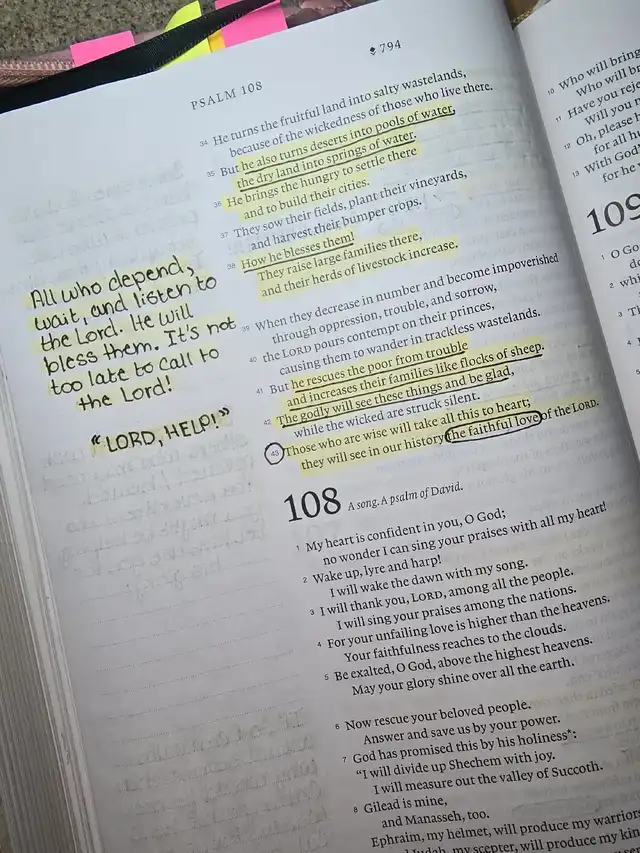 794
PSALM 108
34 He turns the fruitful land into salty wastelands,
because of the wickedness of those who live there.
35 But he also turns deserts into pools of water,
the dry land into springs of water.
36 He brings the hungry to settle there
and to build their cities.
37 They sow their fields, plant their vineyards,
and harvest their bumper crops.
38 How he blesses them!
They raise large families there,
and their herds of livestock increase.
39 When they decrease in number and become impoverished
through oppression, trouble, and sorrow,
40 the LORD pours contempt on their princes,
causing them to wander in trackless wastelands.
41 But he rescues the poor from trouble
and increases their families like flocks of sheep.
42 The godly will see these things and be glad,
while the wicked are struck silent.
43 Those who are wise will take all this to heart;
they will see in our history the faithful love of the LORD.
All who depend,
wait, and listen to
the Lord. He will
bless them. It's not
too late to call to
the Lord!
"LORD, HELP!"
108 A song. A psalm of David.
1 My heart is confident in you, O God;
no wonder I can sing your praises with all my heart!
2 Wake up, lyre and harp!
I will wake the dawn with my song.
3 I will thank you, LORD, among all the people.
I will sing your praises among the nations.
4 For your unfailing love is higher than the heavens.
Your faithfulness reaches to the clouds.
5 Be exalted, O God, above the highest heavens.
May your glory shine over all the earth.
6 Now rescue your beloved people.
Answer and save us by your power.
7 God has promised this by his holiness*:
"I will divide up Shechem with joy.
I will measure out the valley of Succoth.
8 Gilead is mine,
and Manasseh, too.
Ephraim, my helmet, will produce my warriors
Judah, my scepter, will produce my kin
10 Who will bring
Who will br
11 Have you reje
Will you
12 Oh, please h
for all h
13 With God'
for he
109
1 O Go
do
2 whi
3 Th
4